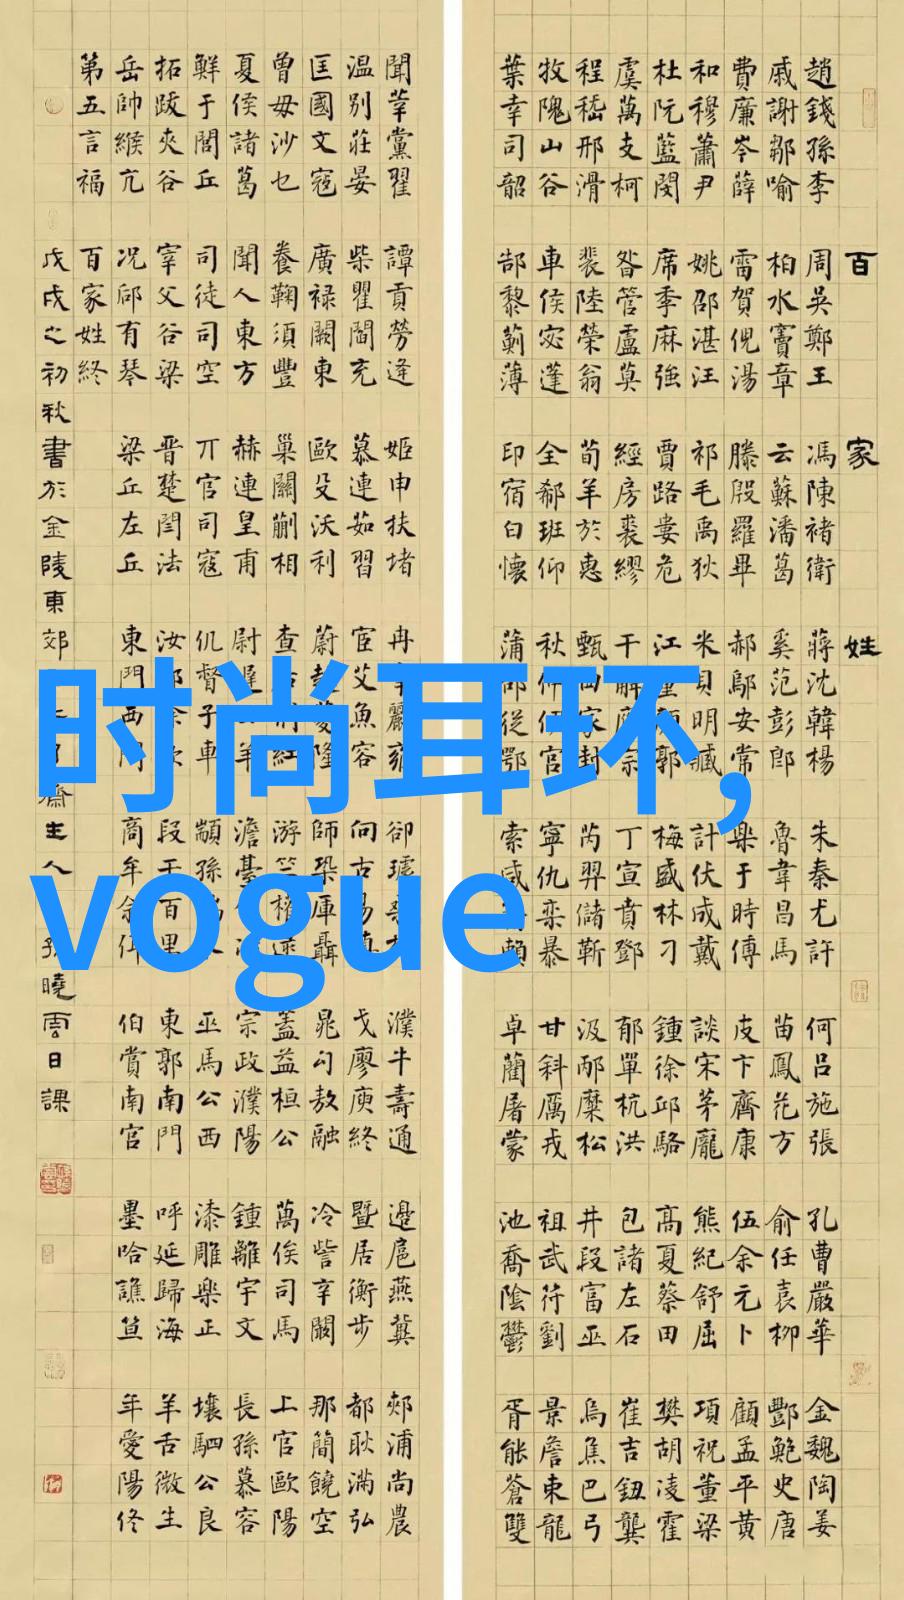 百家姓
趙錢孫李 周吳鄭王 馮陳褚衛 蔣沈韓楊 朱秦尤許 何呂施張 孔曹嚴華 金魏陶姜
戚謝鄒喻 柏水竇章 云蘇潘葛 奚范彭郎 魯韋昌馬 苗鳳花方 俞任袁柳 酆鮑史唐
費廉岑薛 雷賀倪湯 滕殷羅畢 郝鄔安常 樂于時傅 皮卞齊康 伍余元卜 顧孟平黃
和穆蕭尹 姚邵湛汪 祁毛禹狄 米貝明臧 計伏成戴 談宋茅龐 熊紀舒屈 項祝董梁
杜阮藍閔 席季麻強 賈路婁危 江童顏郭 梅盛林刁 鍾徐邱駱 高夏蔡田 樊胡凌霍
虞萬支柯 昝管盧莫 經房裘繆 干解應宗 丁宣賁鄧 郁單杭洪 包諸左石 崔吉鈕龔
程嵇邢滑 裴陸榮翁 荀羊於惠 甄曲家封 芮羿儲靳 汲邴糜松 井段富巫 烏焦巴弓
牧隗山谷 車侯宓蓬 全郗班仰 秋仲伊宮 寧仇欒暴 甘斜厲戎 祖武符劉 景詹束龍
葉幸司韶 郜黎薊薄 印宿白懷 蒲邰從鄂 索咸賴 卓藺屠蒙 池喬陰鬱 胥能蒼雙
聞莘黨翟 譚貢勞逄 姬申扶堵 冉宰酈雍 卻璩桑桂 濮牛壽通 邊扈燕冀 郟浦尚農
温別莊晏 柴瞿閻充 慕連茹習 宦艾魚容 向古易慎 戈廖庾終 暨居衡步 都耿滿弘
匡國文寇 廣祿闕東 歐殳沃利 蔚越夔隆 師鞏厙聶 晁勾敖融 冷訾辛闞 那簡饒空
曾毋沙乜 養鞠須豐 巢關蒯相 查后荊紅 游竺權逯 蓋益桓公 萬俟司馬 上官歐陽
夏侯諸葛 聞人東方 赫連皇甫 尉遲公羊 澹臺公冶 宗政濮陽 鍾離宇文 長孫慕容
鮮于閭丘 司徒司空 丌官司寇 仉督子車 顓孫端木 巫馬公西 漆雕樂正 壤駟公良
拓跋夾谷 宰父谷梁 晉楚閆法 汝鄢涂欽 段干百里 東郭南門 呼延歸海 羊舌微生
岳帥緱亢 況郈有琴 梁丘左丘 東門西門 商牟佘佴 伯賞南宮 墨哈譙笪 年愛陽佟
第五言福 百家姓終
戊戌之初秋書於金陵東郊齋主人孫曉雲日課
时尚耳环,
vogue